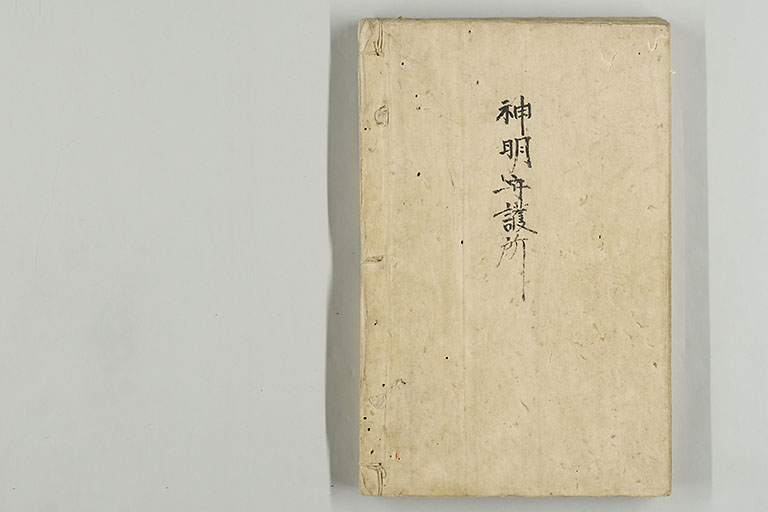 神明護所